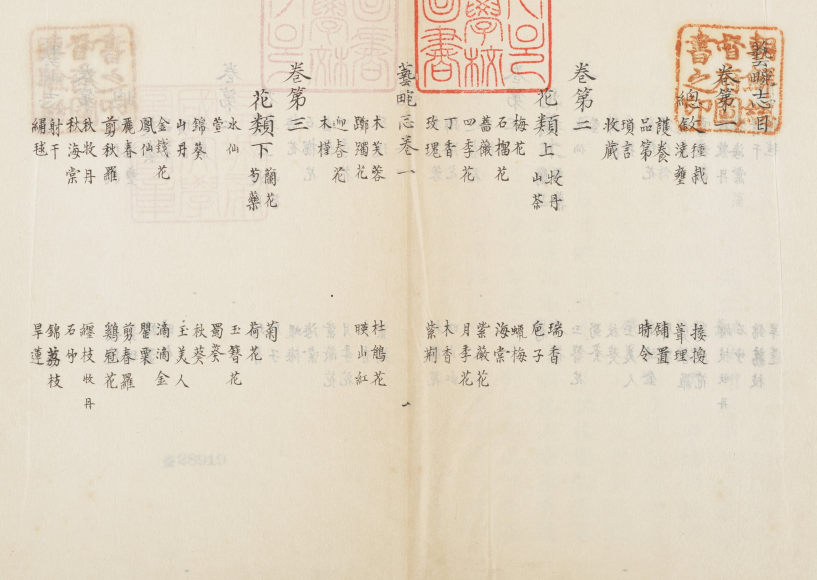 藝畹志目
卷第一
總敘 種栽 接換
澆壅 葺理
護養 鋪置
品第 時令
瑣言
收藏
卷第二
花類上 牡丹 瑞香
山茶 巵子
梅花 蠟梅
石榴花 海棠
薔薇 紫薇花
四季花 月季花
丁香 木香
玫瑰 紫荊
藝畹志卷一 一
木芙蓉 杜鵑花
躑躅花 映山紅
迎春花
木槿
卷第三
花類下 蘭花 菊
芍藥 荷花
水仙 玉簪花
萱 蜀葵
錦葵 秋葵
山丹 玉美人
金錢花 滴滴金
鳳仙 罌粟
麗春 剪春羅
剪秋羅 雞冠花
秋牡丹 纏枝牡丹
秋海棠 石竹
射干 錦荔枝
繡毬 旱蓮